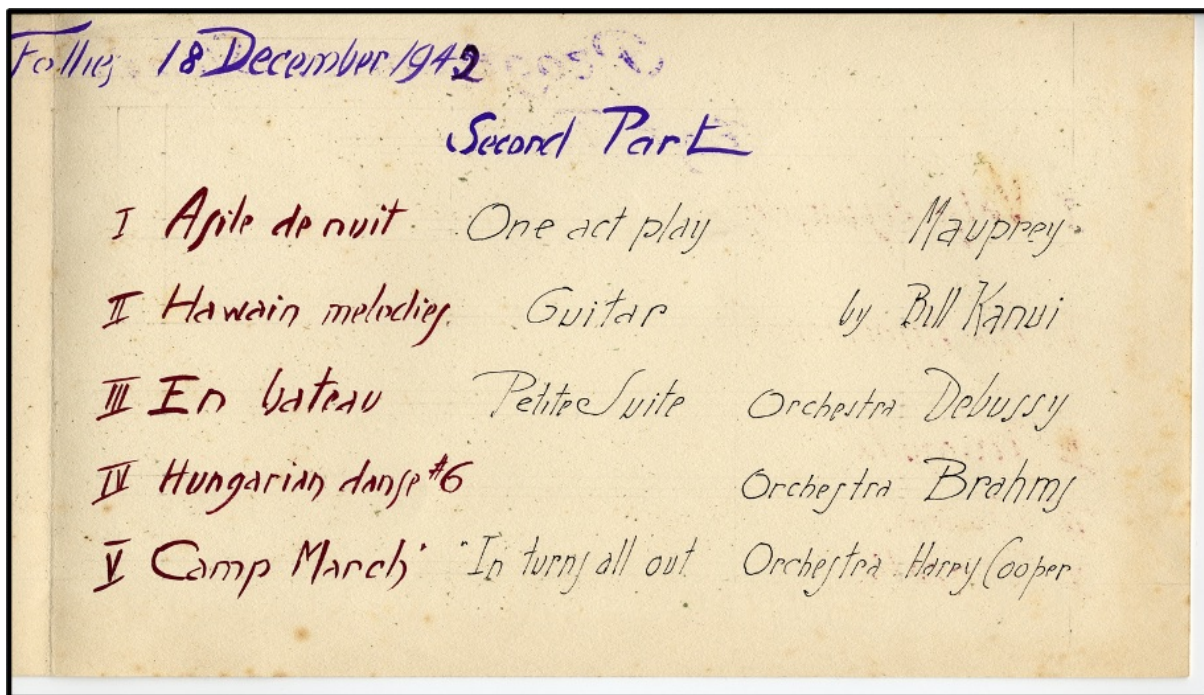 Follies 18 December 1942
Second Part
I Asile de nuit One act play Mauprey
II Hawain melodies Guitar by Bill Kanui
III En bateau Petite Suite Orchestra Debussy
IV Hungarian danse #6 Orchestra Brahms
V Camp March "In turns all out Orchestra Harry Cooper